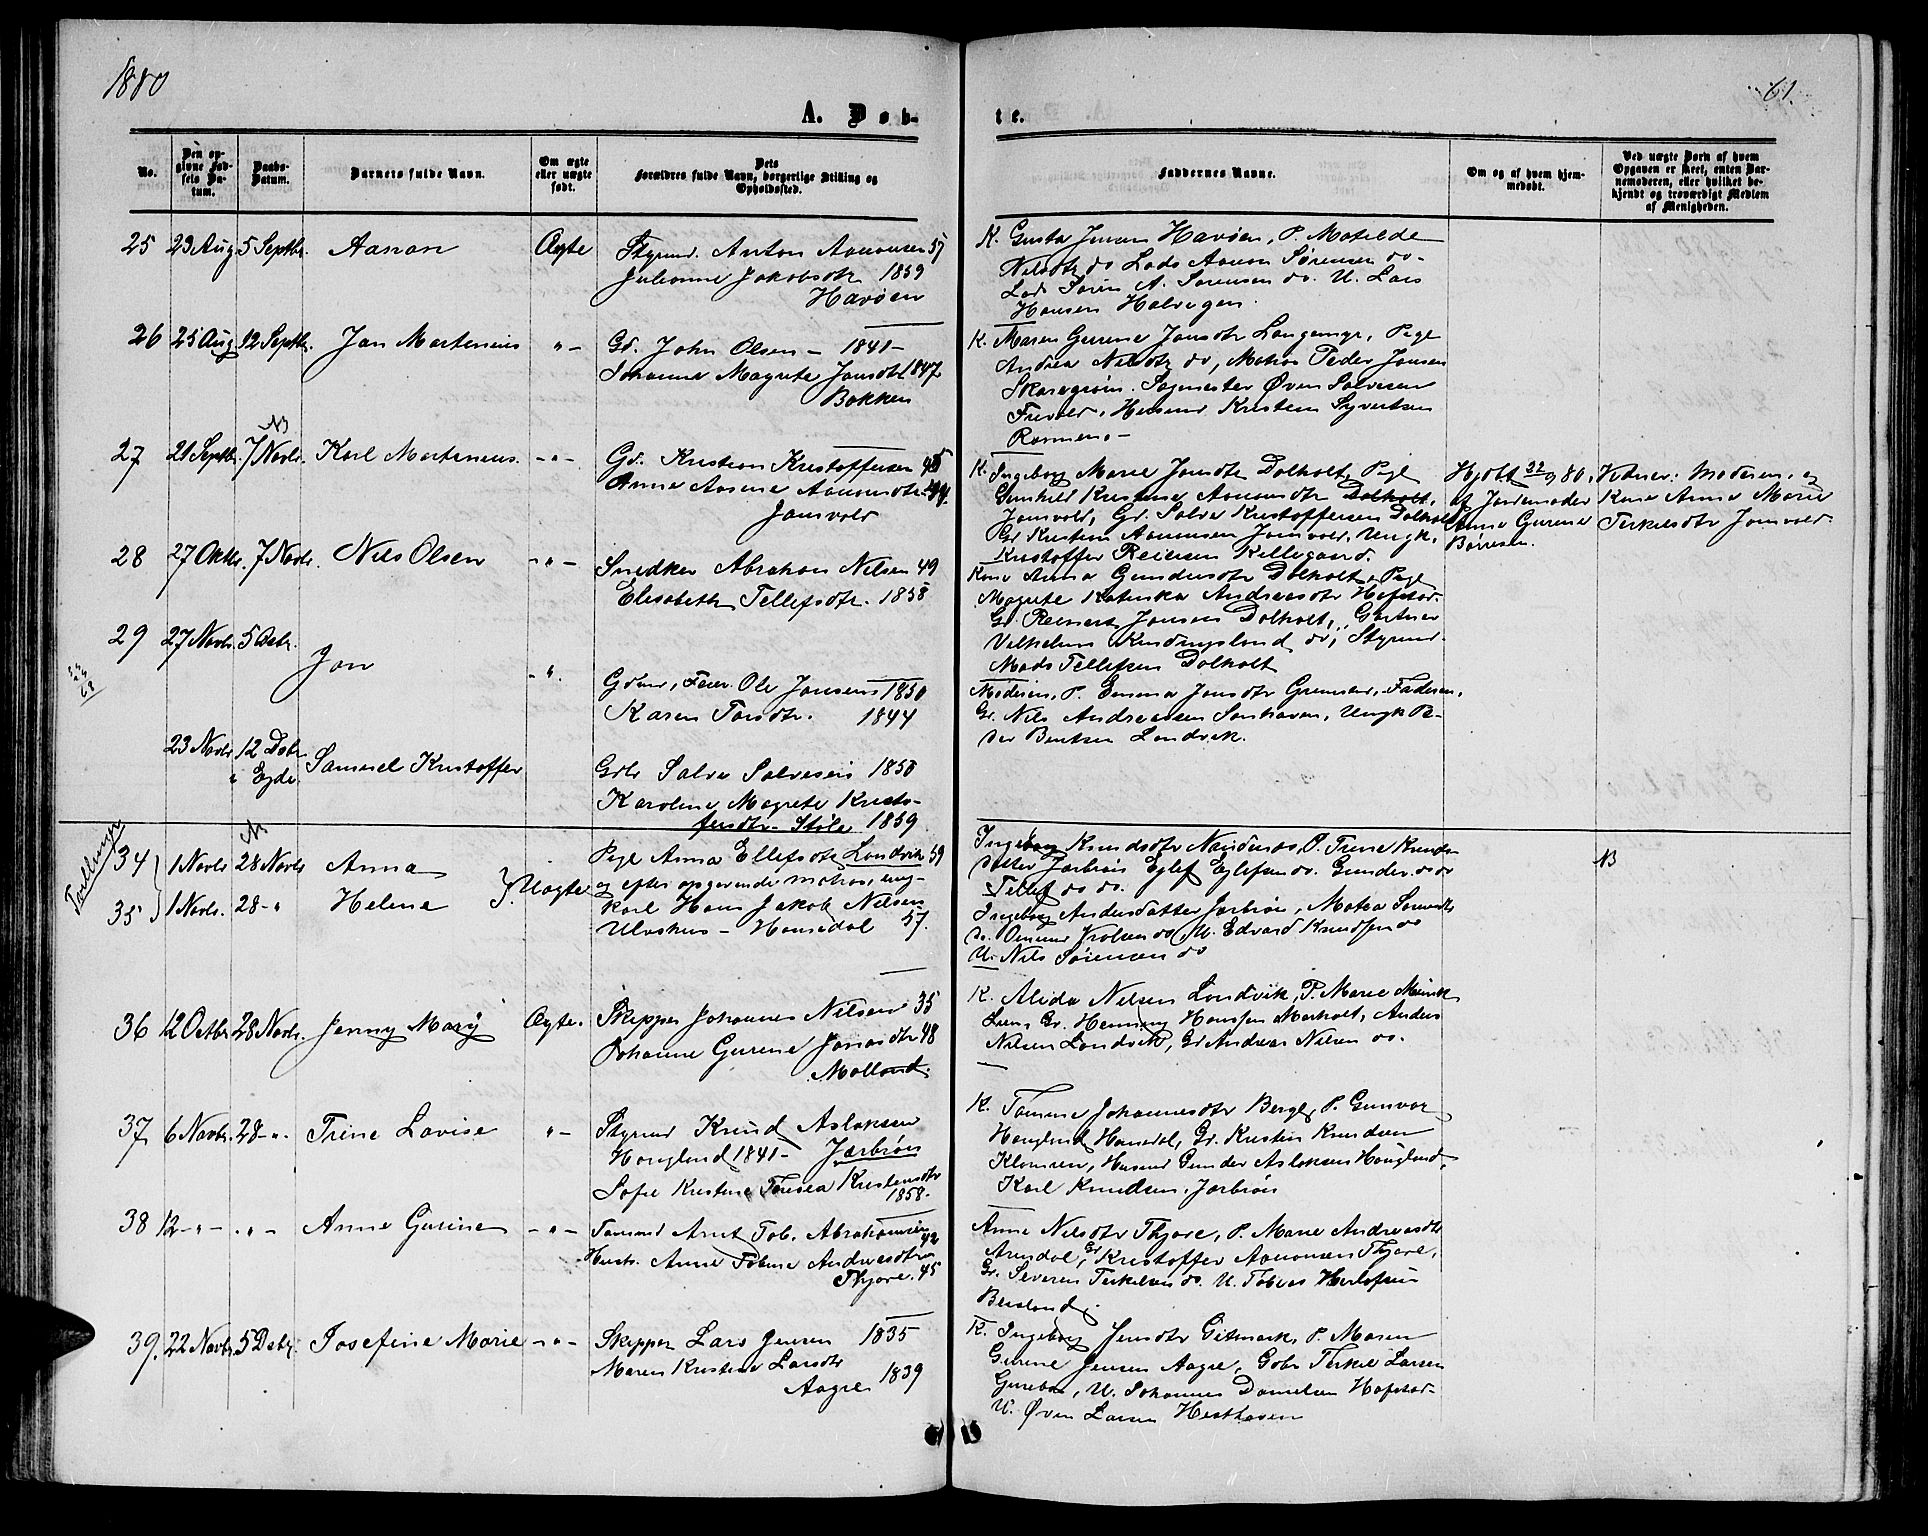 1880
61.
A. Døb-
te.
No.
Den op-
givne Fød-
sels Da-
tum.
Daabs-
Datum.
Barnets fulde Navn.
Om ægte
eller uægte
født.
Dets
Forældres fulde Navn, borgerlige Stilling og
Opholdssted.
Faddernes Navne.
Om og af hvem hjem-
medøbt.
Ved uægte Børn af hvem
Opgaven er skeet, enten Bar-
nemoderen, eller hvilket be-
kjendt og troværdigt Medlem
af Menigheden.
25 23 Aug 5 Septbr. Aanon Ægte Styrmd. Anton Aanonsen 57
Julianne Jakobsdtr 1859
Havøen
K. Gusta Jensen Havøen, P. Matilde
Nilsdtr do Lods Aanon Sørensen do-
Lods Søren A. Sørensen do. U. Lars
Hansen Halvegen.
26 25 Aug 12 Septbr. Jan Martenius "- Gr. John Olsen - 1841-
Johanne Magrete Jansdtr 1847
Bakken
K. Maren Gurine Jansdtr Langemyr, Pige
Andrea Nilsdtr do, Matros Peder Jansen
Skaregrøm. Sagmester Øven Salvesen
Frivold, Husmd Kristen Syvertsen
27 21 Septbr. 7 Novbr. NB Karl Martenius. -"- Gr. Kristian Kristoffersen 45
Anne Aasine Aanonsdtr 44.
Jomvold
K. Ingeborg Marie Jansdtr Dolholt, Pige
Gunhild Kristine Aanonsdtr Dolholt,
Jomvold, Gr. Salve Kristoffersen Dolholt
Gr Kristian Aanonsen Jomvold, Ungk.
Kristoffer Reiersen Killegaard.
Hjdbt 22/9 80.
af Jordemoder
Anne Gurine
Børresen.
Vidner: Moderen, og
Kone Anne Marie
Terkelsdtr Jomvold.
28 27 Oktbr. 7 Novbr. Nils Olsen -"- Snedker Abraham Nilsen 49
Elisabeth Tellefsdtr. 1858
Kone Anna Gundersdtr Dolholt, Pige
Magrete Katinka Andreasdtr Hofstad.
Gr. Reinert Jansen Dolholt, Gartner
Vilhelm do, Styrmd.
Mads Tellefsen Dolholt
29 27 Novbr. 5 Decbr. Jan -". Grdmd, Ole Jansen 1850
Karen Torsdtr. 1844
Moderen, P. Emma Jansdtr Grimstad, Faderen,
Gr. Nils Andreassen Sonhaven, Ungk Pe-
der Bentsen Landvik.
23 Novbr 12 Dcbr Samuel Kristoffer Grbr Salve Salvesen 1850
" Eyde
Karoline Magrete Kristo-
fersdtr Støle 1859
Tvillinger
34 1 Novbr 28 Novbr NB Anna
35 1 Novbr. 28-" Helene
}. Uægte Pige Anna Ellefsdtr Landvik 59
og efter opgivende matros, ung-
karl Hans Jakob Nilsen
- Homsdal 57.
Ingeborg Knudsdtr , P. Trine Knuds-
datter Jorbrøn Eglef Eglefsen do. Gunder do do
Tellef do do.
Ingeborg Andersdatter Jorbrøn, Matea
do. do U. Edvard Knudsen do
U. Nils Sørensen do
NB
36 12 Octbr. 28 Novbr. Jenny Mary Ægte. Skipper Johannes Nilsen 35
Johanne Gurine Jonasdtr 48
Molland
K. Alida Nilsen Landvik, P. Marie Munk
Lien, Gr. Henning Hanssen Morholt, Anders
Nilsen Landvik, Gr Andreas Nilsen do.
37 6 Novbr. 28-". Trine Lovise "- Styrmd Knud Aslaksen
Hougland 1841- Jorbrøn
Sofie Kristine Teresea Kristensdtr
1858-
K. Tomine Johannesdtr Berge, P. Gunvor
Hougland Homsdal, Gr. Kristen Knudsen
Klomren, Husmd Gunder Aslaksen Hougland,
Karl Knudsen, Jorbrøn
38 12-"- "- Anne Gurine -"- Tømmd Arnt Tob. Abrahamsen 42
Hustr. Anne Tobine Andreasdtr
Thjore. 45
Anne Nilsdtr Thjore, P. Marie Andreasdtr
Arendal, Gr Kristoffer Aanonsen Thjore,
Gr. Severin Terkelsen do. U. Tobias Herlofsen
Beisland.
39. 22 Novbr. 5 Dcbr. Josefine Marie -"- Skipper Lars Jensen 1835
Maren Kristine Larsdtr
Aagre 1839
K. Ingeborg Jensdtr Gitmark, P. Maren
Gurine Jensen Aagre, Gbr Terkel Larsen
Gurebo, U. Johannes Danielsen Hofstad-
U. Øven Larsen Hesthaven